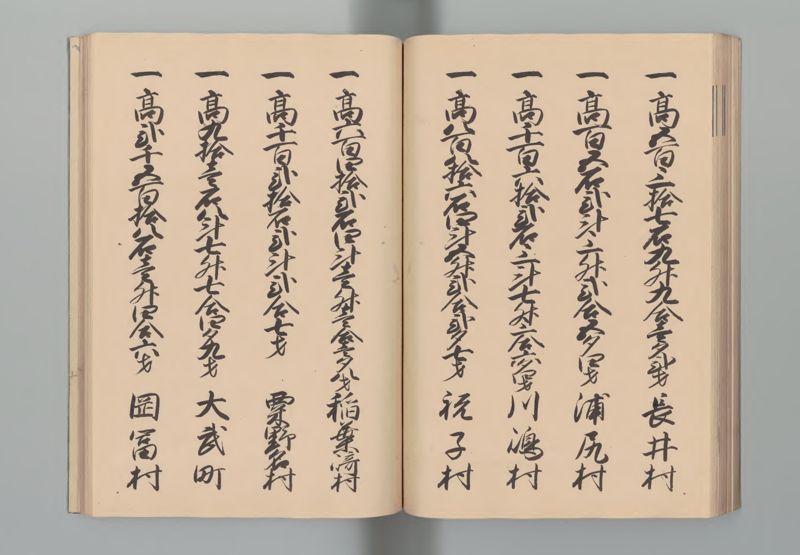 一 高五百三拾七石九升九合壱夕弐才 長井村
一 高百五石弐斗六升弐合五夕四才 浦尻村
一 高千百六拾弐石三斗七升三合 川嶋村
一 高八百拾六石四斗六升弐合弐夕七才 祝子村
一 高六百四拾弐石四斗壱升壱合壱夕八才 稲葉崎村
一 高千百弐拾石弐斗弐合七才 粟野名村
一 高九拾壱石八斗七升七合四夕九才 大武町
一 高弐千五百拾八石壱升四合六才 岡冨村